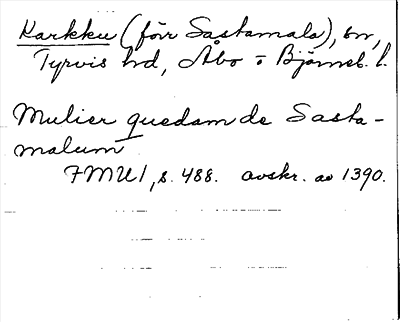 Karkku (förr Sastamala), sn,
Tyrvis hd, Åbo o Björneb. l.
Mulier quedam de Sasta-
malum
FMU I, s. 488. avskr. av 1390.